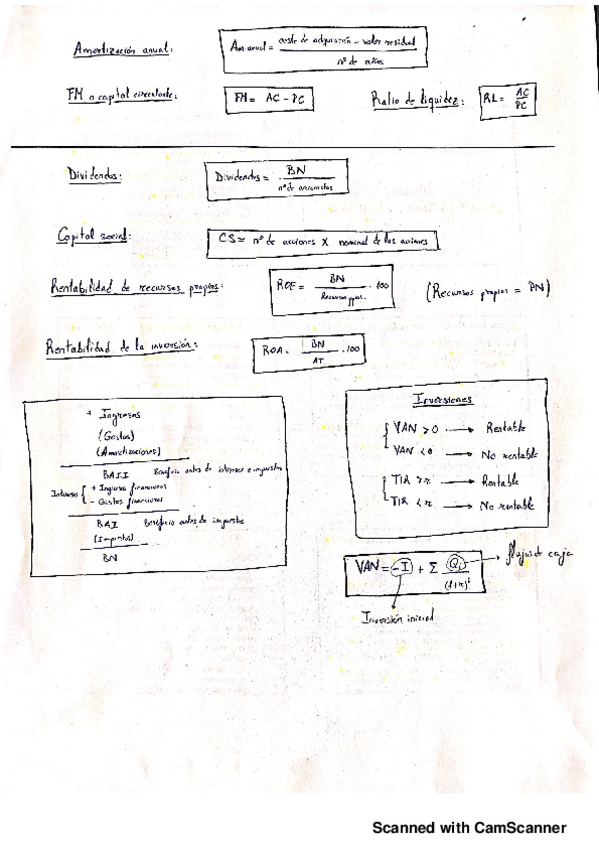 Amortización anual:
Am. anual = coste de adquisición - valor residual
nº de años
FM o capital circulante:
FM = AC - PC
Ratio de liquidez:
RL = AC
PC
Dividendos:
Dividendos = BN
nº de accionistas
Capital social:
CS = nº de acciones x nominal de las acciones
Rentabilidad de recursos propios:
ROE = BN . 100
Recursos prop.
(Recursos propios = PN)
Rentabilidad de la inversión:
ROA = BN . 100
AT
+ Ingresos
(Gastos)
(Amortizaciones)
BAII Beneficio antes de intereses e impuestos
Intereses { + Ingresos financieros
- Gastos financieros
BAI Beneficio antes de impuestos
(Impuestos)
BN
Inversiones
VAN > 0 → Rentable
VAN < 0 → No rentable
TIR > r → Rentable
TIR < r → No rentable
VAN = -I + Σ Qi
(1+r)^i
flujos de caja
Inversión inicial
Scanned with CamScanner